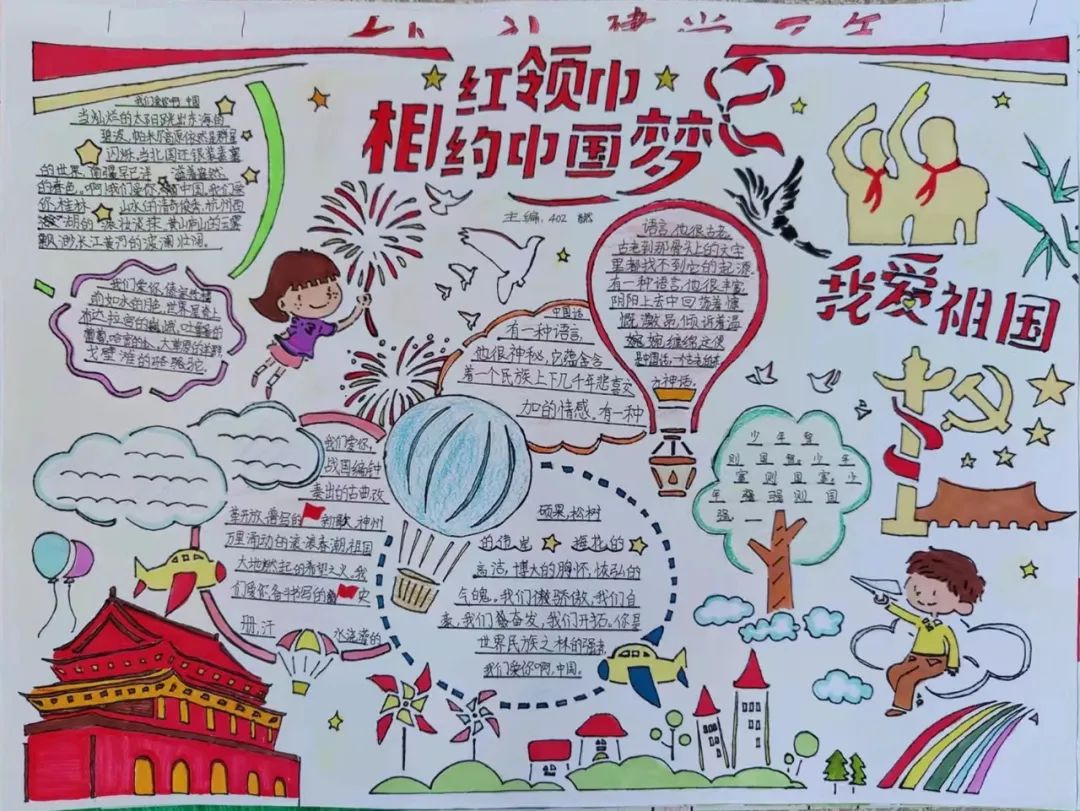 红领巾
相约中国梦
主编：402
我爱祖国
我们爱你啊 中国
当灿烂的太阳跳出东海的
碧波，帕米尔高原依然是群星
闪烁，当北国还银装素裹
的世界，南疆早已洋 溢着盎然
的春色。啊！我们爱你 中国，我们爱
你，桂林 山水的清奇俊秀，杭州西
湖的浓妆淡抹，黄山庐山的云雾
飘渺长江黄河的波澜壮阔。
我们爱你，傣家竹楼
前如水的月色，世界屋脊上
布达拉宫的巍峨，吐鲁番的
葡萄，哈密的瓜，大草原的羊群
戈壁滩的骆驼。
我们爱你，
战国编钟
奏出的古曲，改
革开放谱写的 新歌，神州
万里涌动的滚滚春潮，祖国
大地燃起的希望之火。我
们爱你，各 书写的 史
册，汗 水浇灌的
中国话
有一种语言，
他很神秘，它蕴含含
着一个民族上下几千年悲喜交
加的情感。有一种
语言，他很古老，
古老到那骨头上的文字
里都找不到它的起源。
有一种语言，他很丰富
阴阳上去中回荡着慷
慨激昂，倾诉着温
婉 缠绵，这便
是中国话，一个古老的东
方神话。
硕果，松树
的伟岸 梅花的
高洁，博大的胸怀，恢弘的
气魄。我们傲骄傲，我们自
豪，我们奋发，我们开拓。你是
世界民族之林的强者，
我们爱你啊，中国。
少年智
则国智。少年
富则国富。少
年强强则国
强。